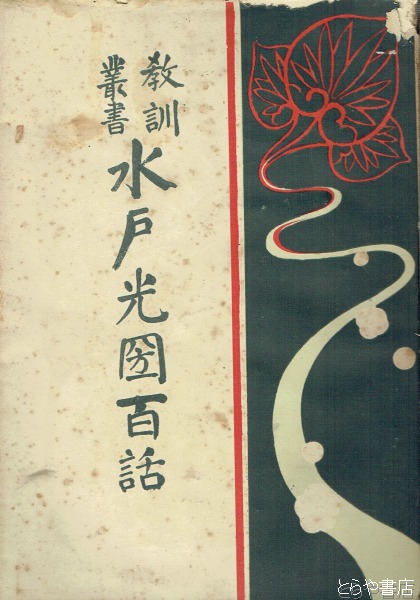 教訓
叢書
水戸光圀百話
とらや書店